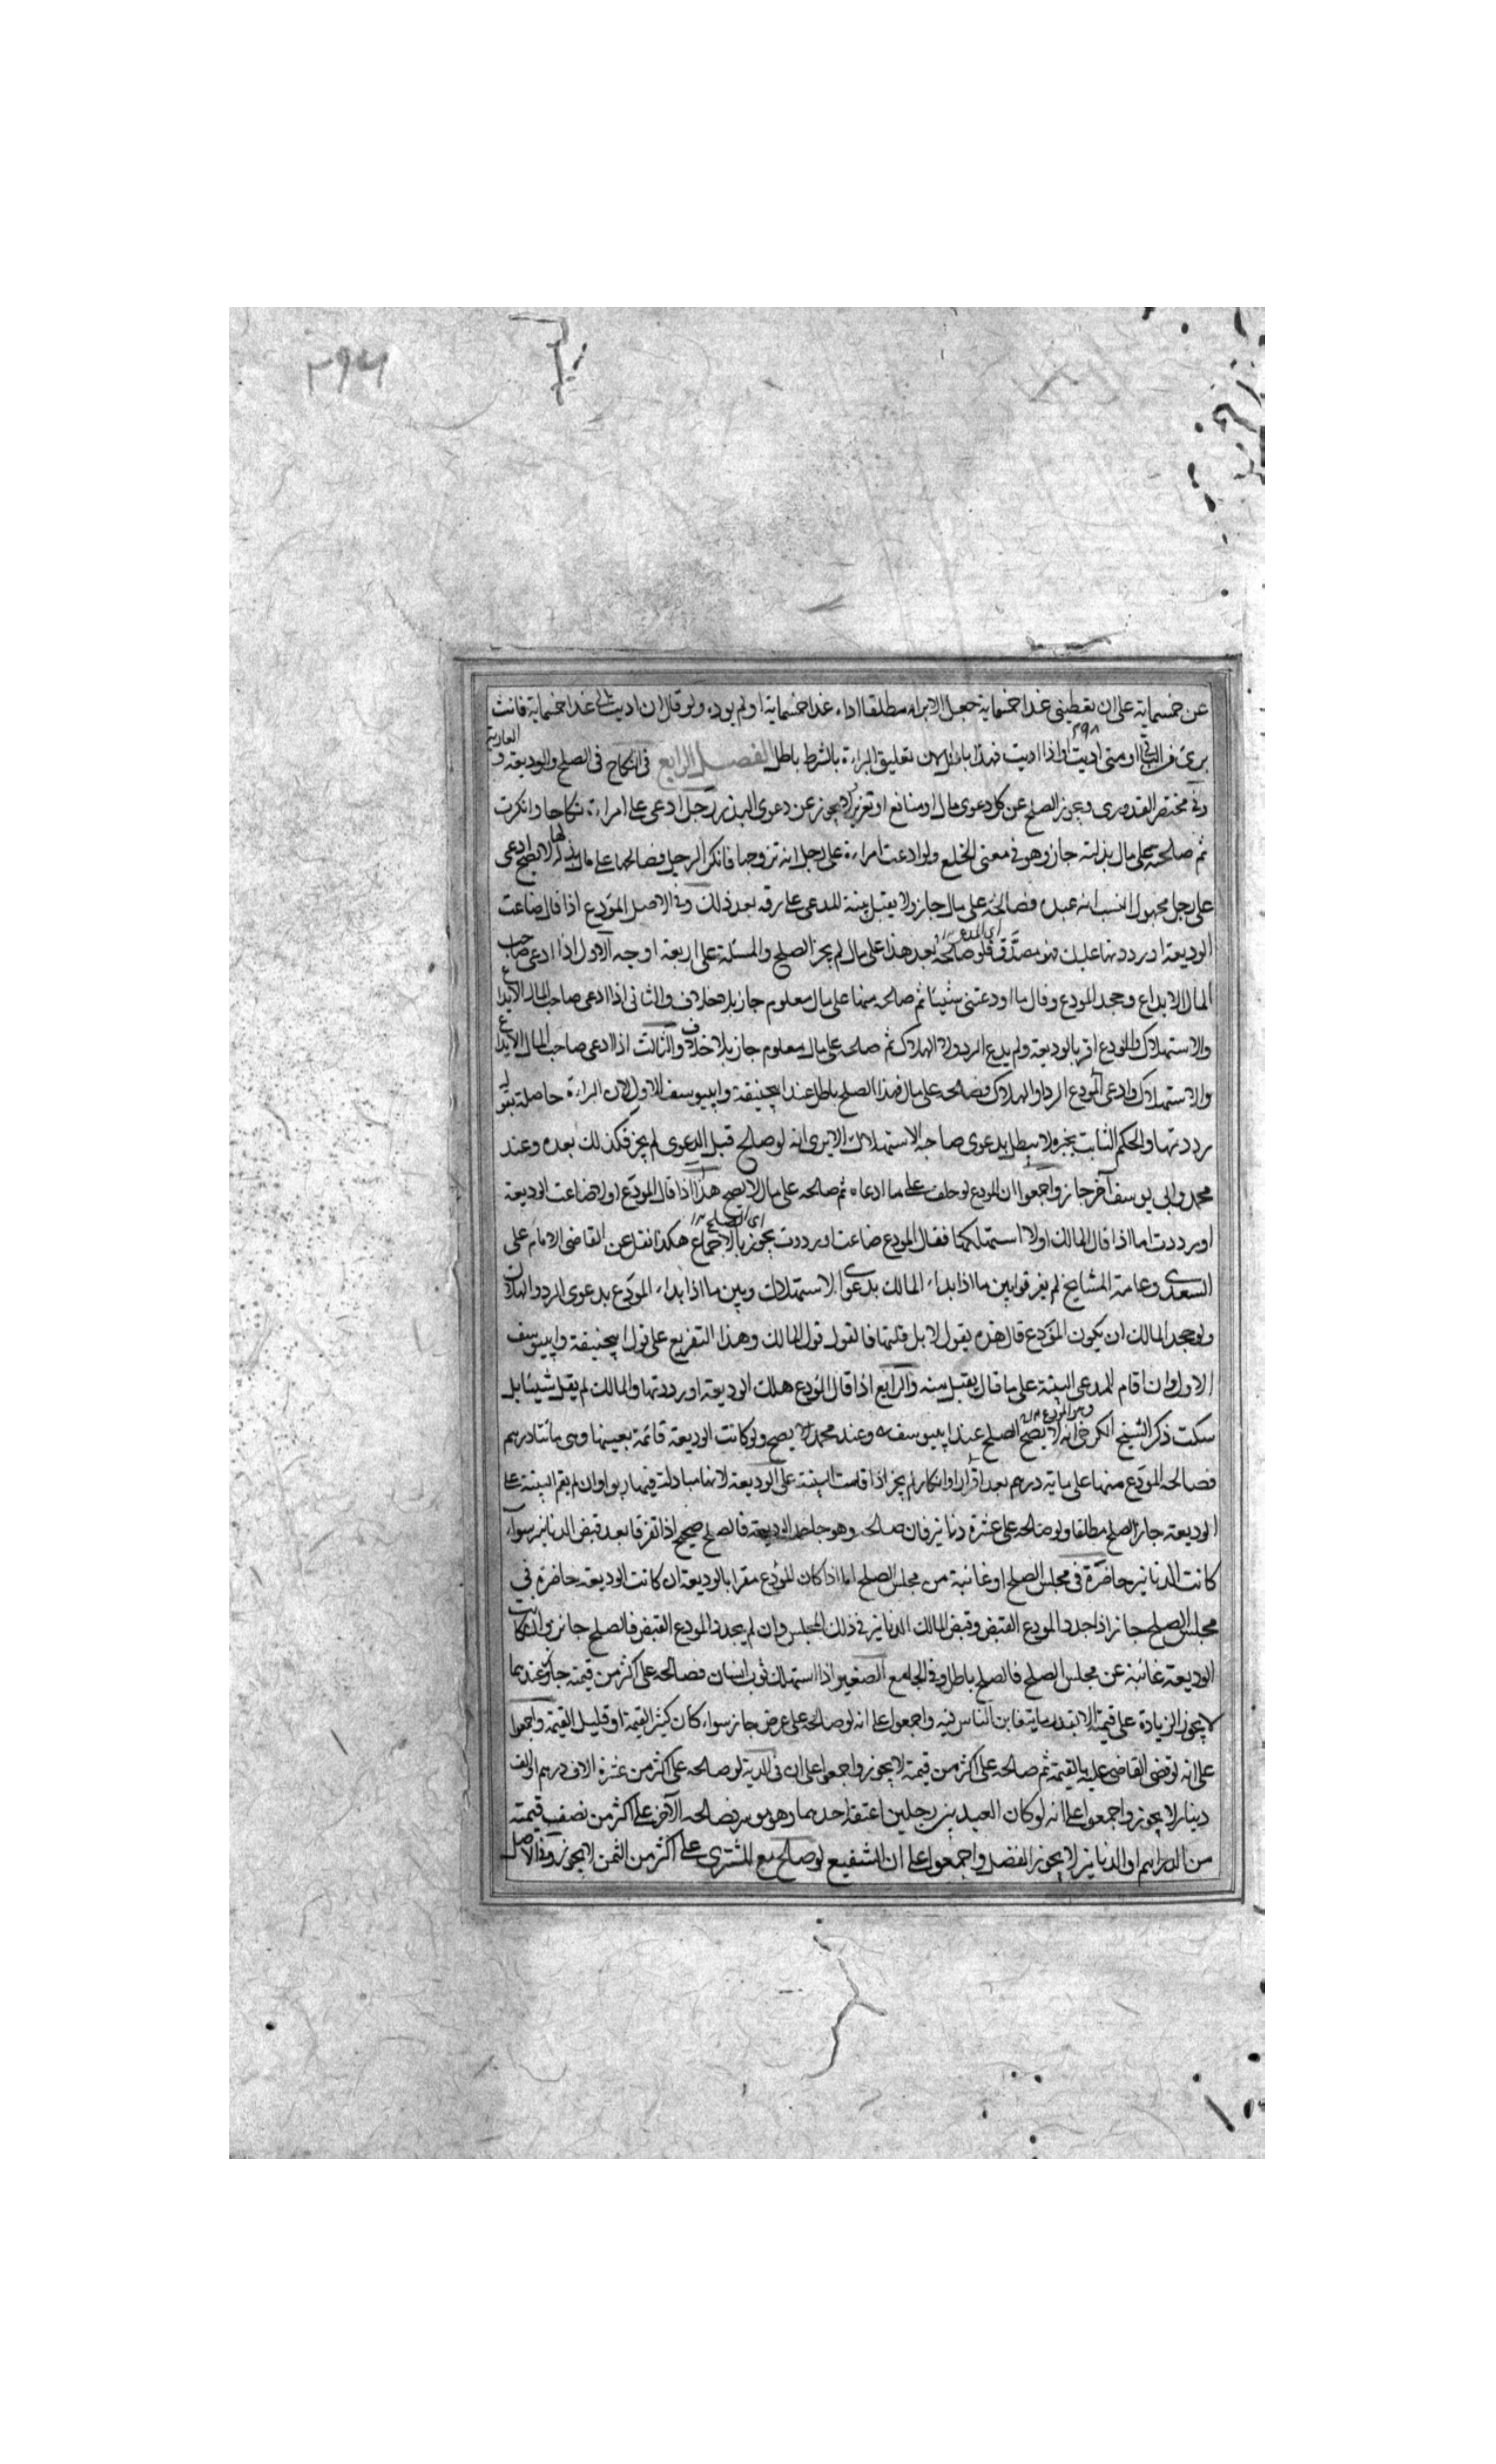 ۲۹۶
عن خمسماية على ان تعطينى غدا خمسماية جعل الابراء مطلقا اداء غدا خمسماية او لم يوده ولو قال ان اديت الى غدا خمسماية فانت
برئ من الباقى او متى اديت او اذا اديت فهذا باطل لان تعليق البراءة بالشرط باطل الفصل الرابع فى النكاح فى الصلح والوديعة و العارية
وفى مختصر القدورى ويجوز الصلح عن كل دعوى مال او منافع او تعزير لا يجوز عن دعوى الحد رجل ادعى على امراءة نكاحا وانكرت
ثم صالحته على مال بذلته جاز وهو فى معنى الخلع ولو ادعت امراءة على رجل انه تزوجها فانكر الرجل فصالحها على مال بذله لها لا يصح ادعى
على رجل مجهول النسب انه عبده فصالحه على مال جاز ولا يقبل بينة للمدعى على رقه بعد ذلك وفى الاصل المودع اذا قال ضاعت
الوديعة او رددتها عليك فهو مصدق فلو صالحه بعد هذا على مال لم يجز الصلح والمسئلة على اربعة اوجه الاول اذا ادعى صاحب
اى المدعى
المال الايداع وجحد المودع وقال ما اودعتنى شيئا ثم صالحه منها على مال معلوم جاز بلا خلاف والثانى اذا ادعى صاحب المال الايداع
والاستهلاك والمودع اقر بالوديعة ولم يدع الرد ولا الهلاك ثم صالحه على مال معلوم جاز بلا خلاف والثالث اذا ادعى صاحب المال الايداع
والاستهلاك وادعى المودع الرد او الهلاك فصالحه على مال فهذا الصلح باطل عند ابيحنيفة وابييوسف الاول لان البراءة حاصلة بقوله
رددتها والحكم الثابت بخبره لا يبطل بدعوى صاحبه الاستهلاك الا يرى انه لو صالح قبل الدعوى لم يجز فكذلك بعده وعند
محمد وابى يوسف آخر جاز واجمعوا ان المودع لو حلف على ما ادعاه ثم صالحه على مال لا يصح هذا اذا قال المودع اولا ضاعت الوديعة
او رددت اما اذا قال المالك اولا استهلكتها فقال المودع ضاعت او رددت يجوز بالاجماع هكذا نقل عن القاضى الامام على
اى الصلح
السغدى وعامة المشايخ لم يفرقوا بين ما اذا بداء المالك بدعوى الاستهلاك وبين ما اذا بداء المودع بدعوى الرد والهلاك
ولو جحد المالك ان يكون المودع قال هذه يقول لا بل قلتها فالقول قول المالك وهذا التفريع على قول ابيحنيفة وابييوسف
الاول وان اقام المدعى البينة على ما قال يقبل بينه والرابع اذا قال المودع هلك الوديعة او رددتها والمالك لم يقل شيئا بل
سكت ذكر الشيخ الكرخى انه لا يصح الصلح عند ابييوسف وعند محمد يصح ولو كانت الوديعة قائمة بعينها وهى مائتا درهم
وهو المودع
فصالحه المودع منها على ماية درهم بعد اقرار او انكار لم يجز اذا قامت البينة على الوديعة لانها مبادلة فيها ربوا وان لم يقم البينة على
الوديعة جاز الصلح مطلقا ولو صالحه على عشرة دنانير فان صالحه وهو جاحد الوديعة فالصلح صحيح اذا تفرقا بعد قبض الدنانير سواء
كانت الدنانير حاضرة فى مجلس الصلح او غائبة من مجلس الصلح اما اذا كان المودع مقرا بالوديعة ان كانت الوديعة حاضرة فى
مجلس الصلح جاز اذا جدد المودع القبض وقبض المالك الدنانير فى ذلك المجلس وان لم يجدد المودع القبض فالصلح جائز وان كانت
الوديعة غائبة عن مجلس الصلح فالصلح باطل وفى الجامع الصغير اذا استهلك ثوب انسان فصالحه على اكثر من قيمته جاز وعندهما
لا يجوز الزيادة على قيمته الا بقدر ما يتغابن الناس فيه واجمعوا على انه لو صالحه على عرض جاز سواء كان كثير القيمة او قليل القيمة واجمعوا
على انه لو قضى القاضى عليه بالقيمة ثم صالحه على اكثر من قيمة لا يجوز واجمعوا على ان فى الدية لو صالحه على اكثر من عشرة الاف درهم او الف
دينار لا يجوز واجمعوا على انه لو كان العبد بين رجلين اعتق احدهما وهو موسر فصالحه الآخر على اكثر من نصف قيمته
من الدراهم او الدنانير لا يجوز الفضل واجمعوا على ان الشفيع لو صالح مع المشترى على اكثر من الثمن لا يجوز وفى الاصل